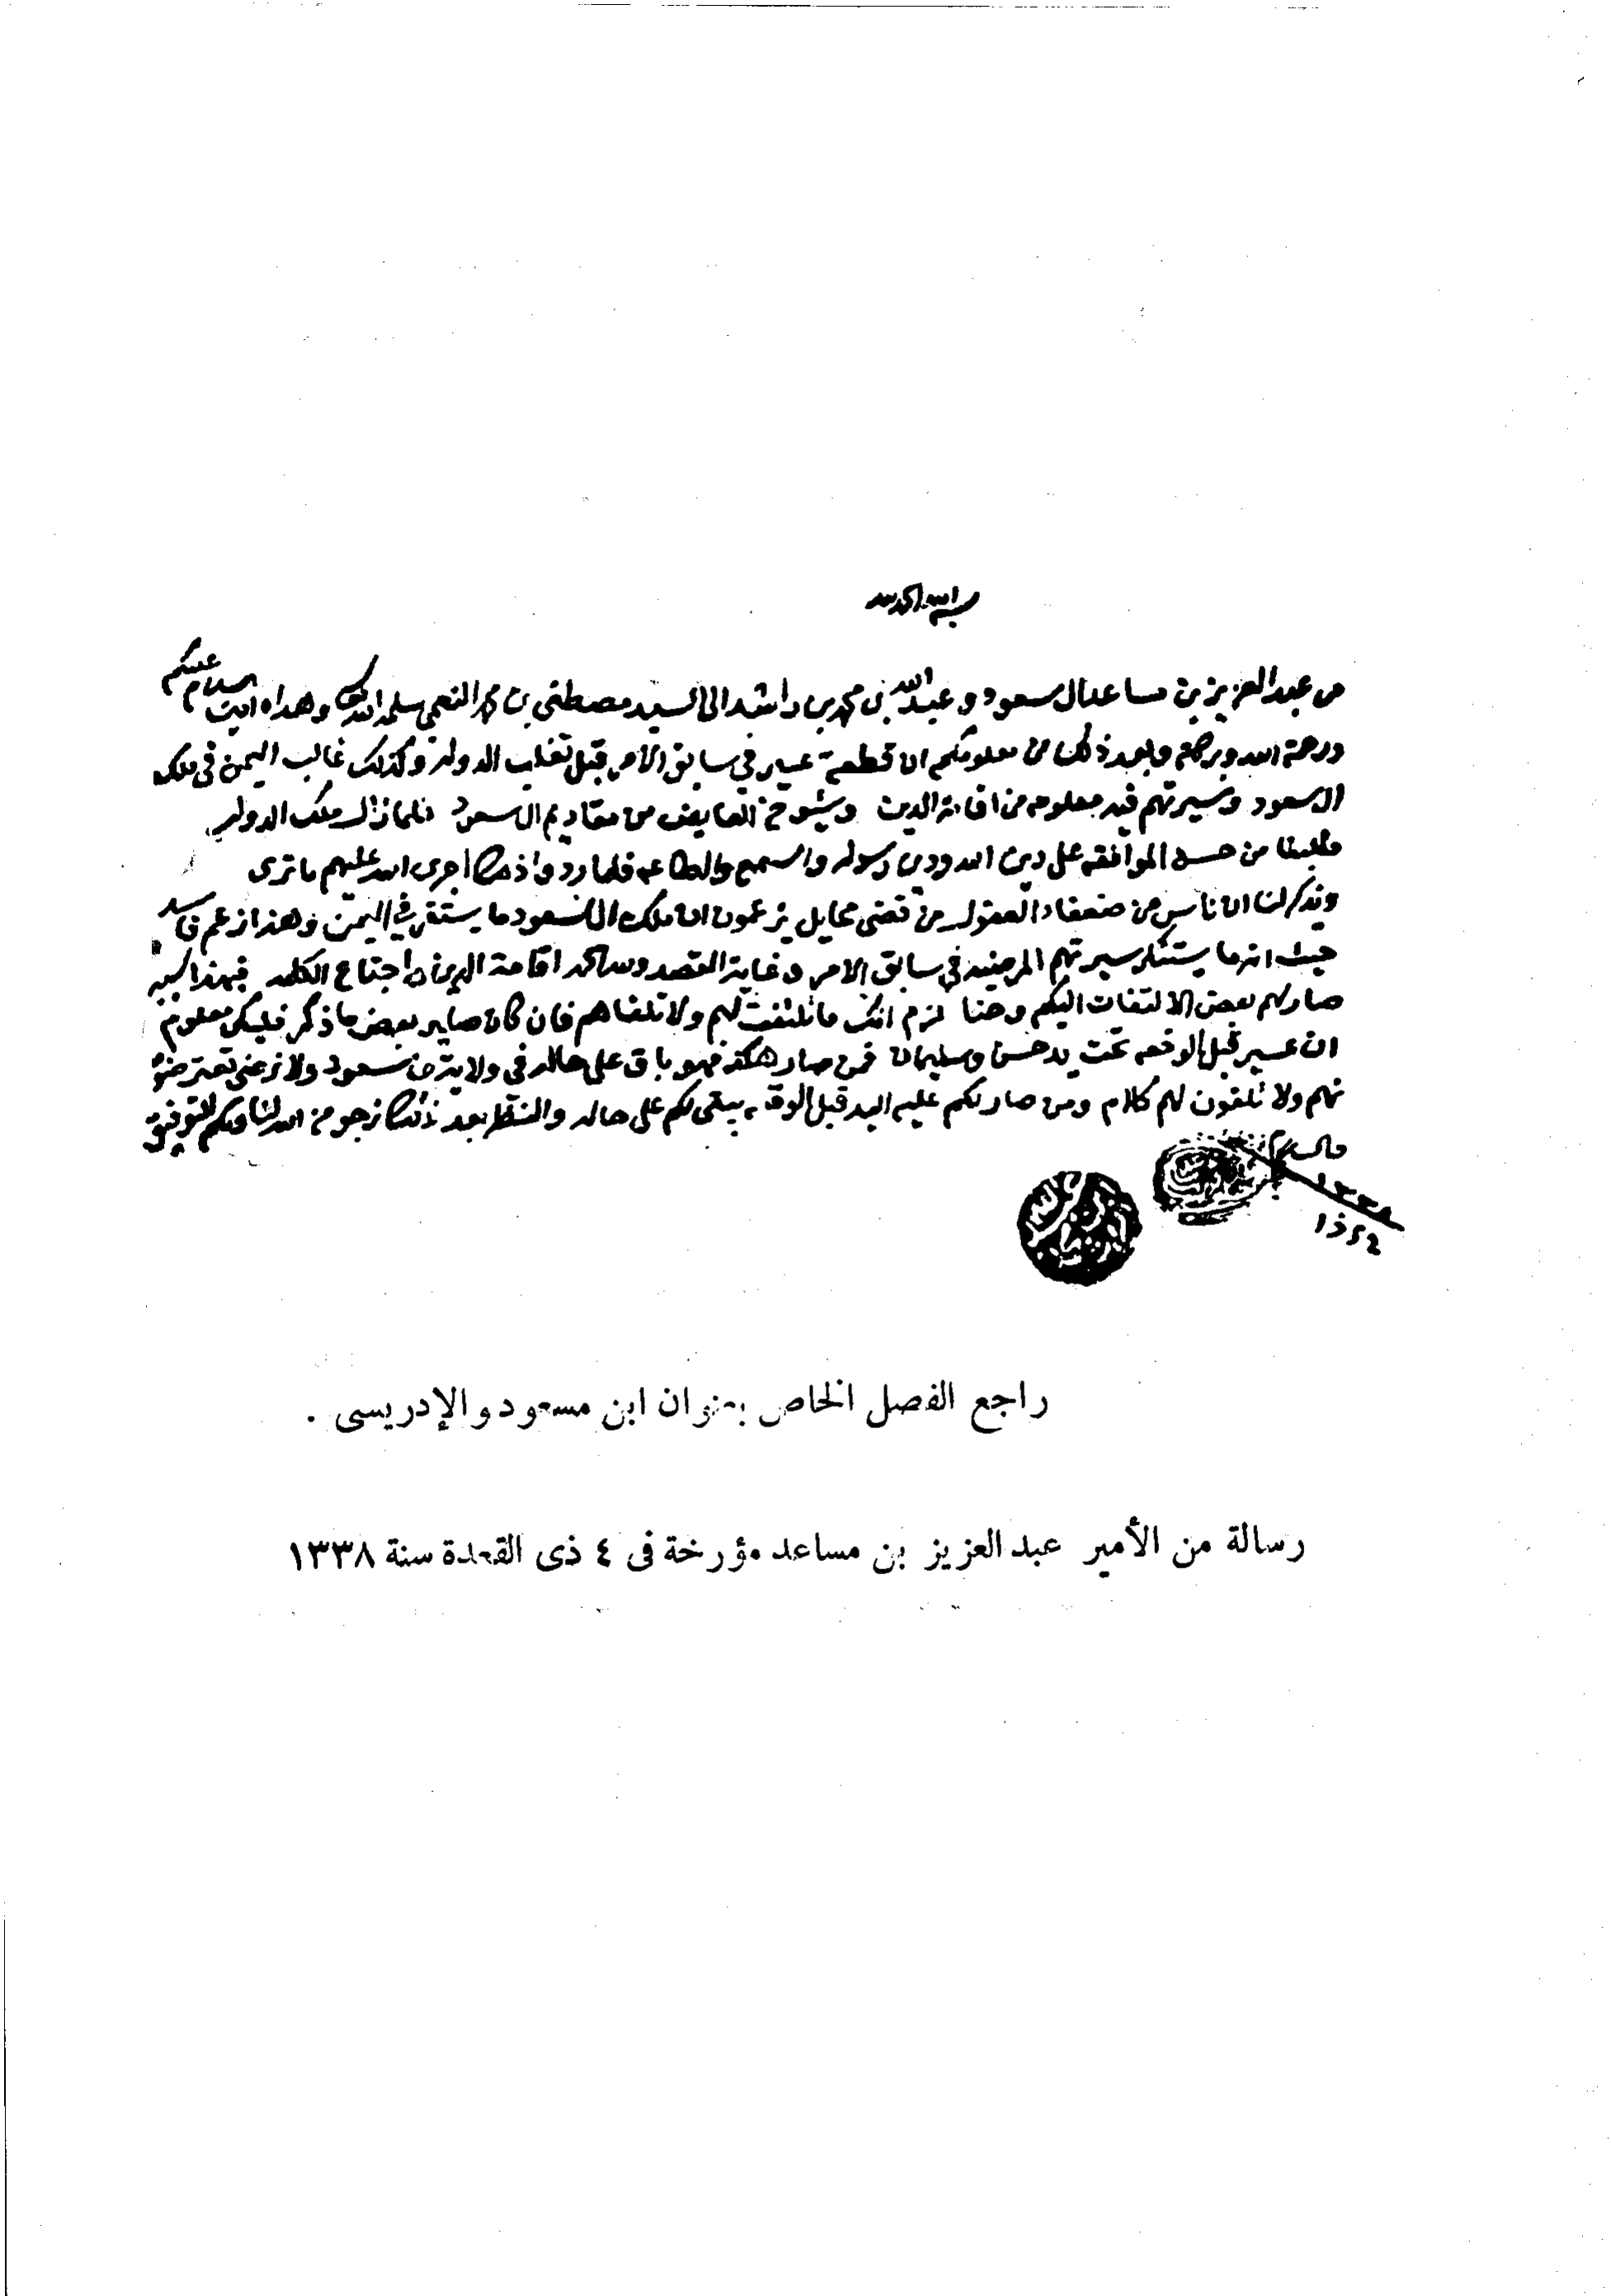 بسم الله الحمد لله
من عبد العزيز بن مساعد ال سعود و عبد الله بن محمد بن راشد الى السيد مصطفى بن محمد النعمي سلمه الله وهداه امين السلام عليكم
ورحمة الله وبركاته وبعد ذلك من معلومكم ان قطعة عسير في سابق الامر قبل تغلب الدوله وكذلك غالب اليمن في ملك
ال سعود وسيرتهم فيه معلومه من اقامة الدين وشيوخ العايض من مقاديم ال سعود فلما زال ملك الدوله
طلبنا من حسن الموافقه على دين الله ودين رسوله والسمع والطاعه فلما رد واذ اجرى الله عليهم ما ترى
ويذكر لنا ان ناس من ضعفاء العقول من قضى محايل يزعمون ان ملك ال سعود ما يستقر في اليمن وهذا زعم فاسد
حيث انه ما يستنكر سيرتهم المرضيه في سابق الامر وغاية القصد اقامة الدين واجتماع الكلمه فبهذا السبب
صار لهم بعض الالتفات اليكم وحنا لزم انك ما تلتفت لهم ولا تلقاهم فان كان صاير بعض ما ذكر فليكن معلوم
ان عسير قبل الوقعه تحت يد حسن وسليمان فمن صار هكذا فهو باق على حاله في ولاية بن سعود ولا نرضى تعترضو
لهم ولا تلقون لهم كلام ومن صار لكم عليه اليد قبل الوقعه يبقى لكم على حاله والنظر بعد ذلك نرجو من الله لنا ولكم التوفيق
والسلام
١٣٣٨
راجع الفصل الخاص بعنوان ابن مسعود والإدريسى .
رسالة من الأمير عبد العزيز بن مساعد مؤرخة فى ٤ ذى القعدة سنة ١٣٣٨